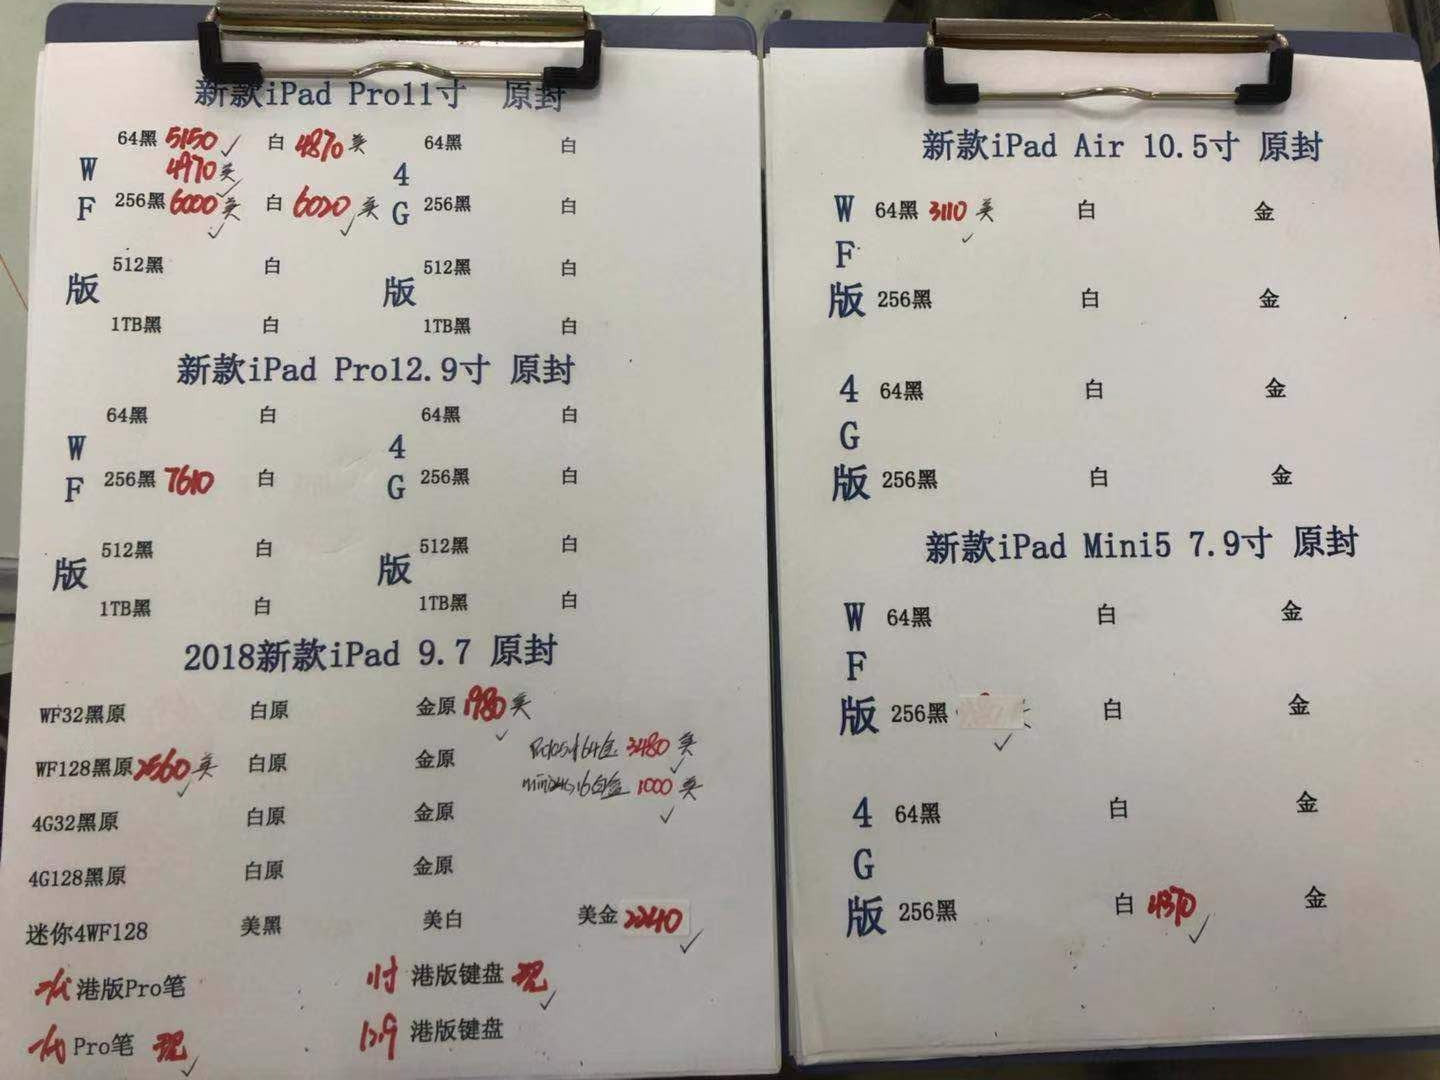 新款iPad Pro11寸 原封
64黑 5150 白 4870 美 64黑 白
4970 美
W 4
F 256黑 6000 美 白 6020 美 G 256黑 白
512黑 白 512黑 白
版 版
1TB黑 白 1TB黑 白
新款iPad Pro12.9寸 原封
64黑 白 64黑 白
W 4
F 256黑 7610 白 G 256黑 白
512黑 白 512黑 白
版 版
1TB黑 白 1TB黑 白
2018新款iPad 9.7 原封
WF32黑原 白原 金原 1980 美
WF128黑原 2560 美 白原 金原 64 3480 美
4G32黑原 白原 金原 mini 16白 1000 美
4G128黑原 白原 金原
迷你4WF128 美黑 美白 美金 2240
港版Pro笔 11寸 港版键盘 现
Pro笔 现 12.9 港版键盘
新款iPad Air 10.5寸 原封
W 64黑 3110 美 白 金
F
版 256黑 白 金
4 64黑 白 金
G
版 256黑 白 金
新款iPad Mini5 7.9寸 原封
W 64黑 白 金
F
版 256黑 白 金
4 64黑 白 金
G
版 256黑 白 4370 金